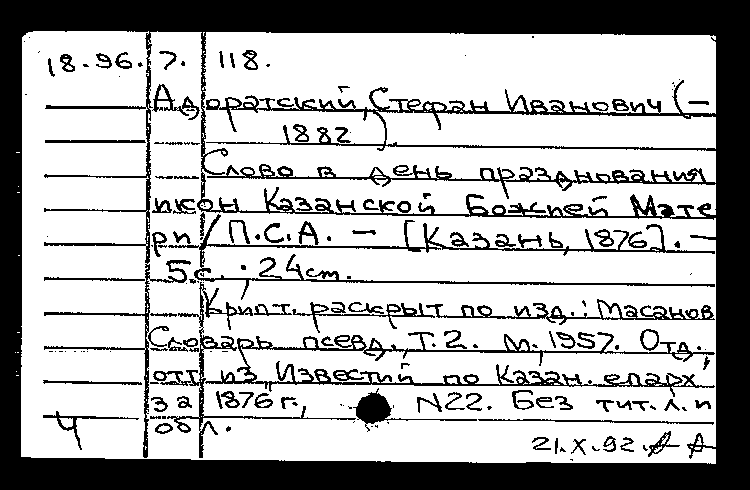 18.96.7. 118.
Адоратский, Стефан Иванович (-
1882).
Слово в день празднования
икон Казанской Божией Мате
ри / П.С.А. - [Казань, 1876]. -
5с. ; 24 cm.
Крипт. раскрыт по изд.: Масанов
Словарь псевд., Т.2. М., 1957. Отд.
отт. из "Известий по Казан. епарх",
за 1876 г., N22. Без тит. л. и
обл.
Ч
21.X.92.